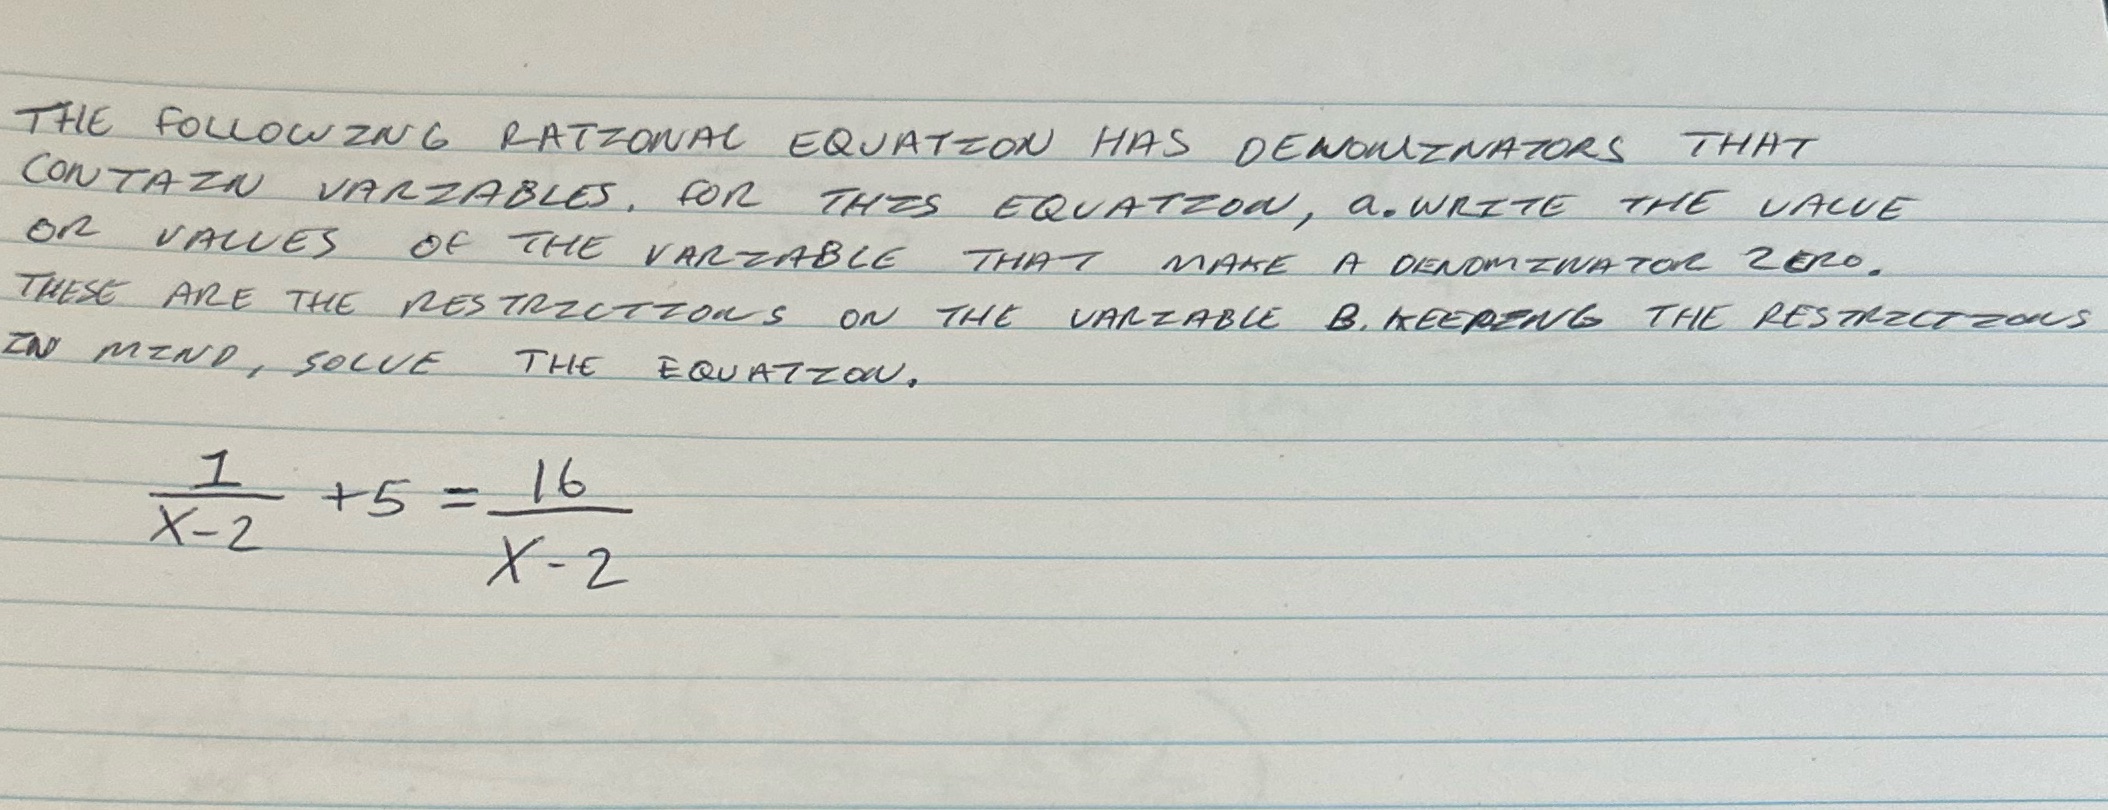 THE FOLLOWING RATIONAL EQUATION HAS DENOMINATORS THAT
CONTAIN VARIABLES. FOR THIS EQUATION, a. WRITE THE VALUE
OR VALUES OF THE VARIABLE THAT MAKE A DENOMINATOR ZERO.
THESE ARE THE RESTRICTIONS ON THE VARIABLE B. KEEPING THE RESTRICTIONS
IN MIND, SOLVE THE EQUATION.
1/(X-2) +5 = 16/(X-2)